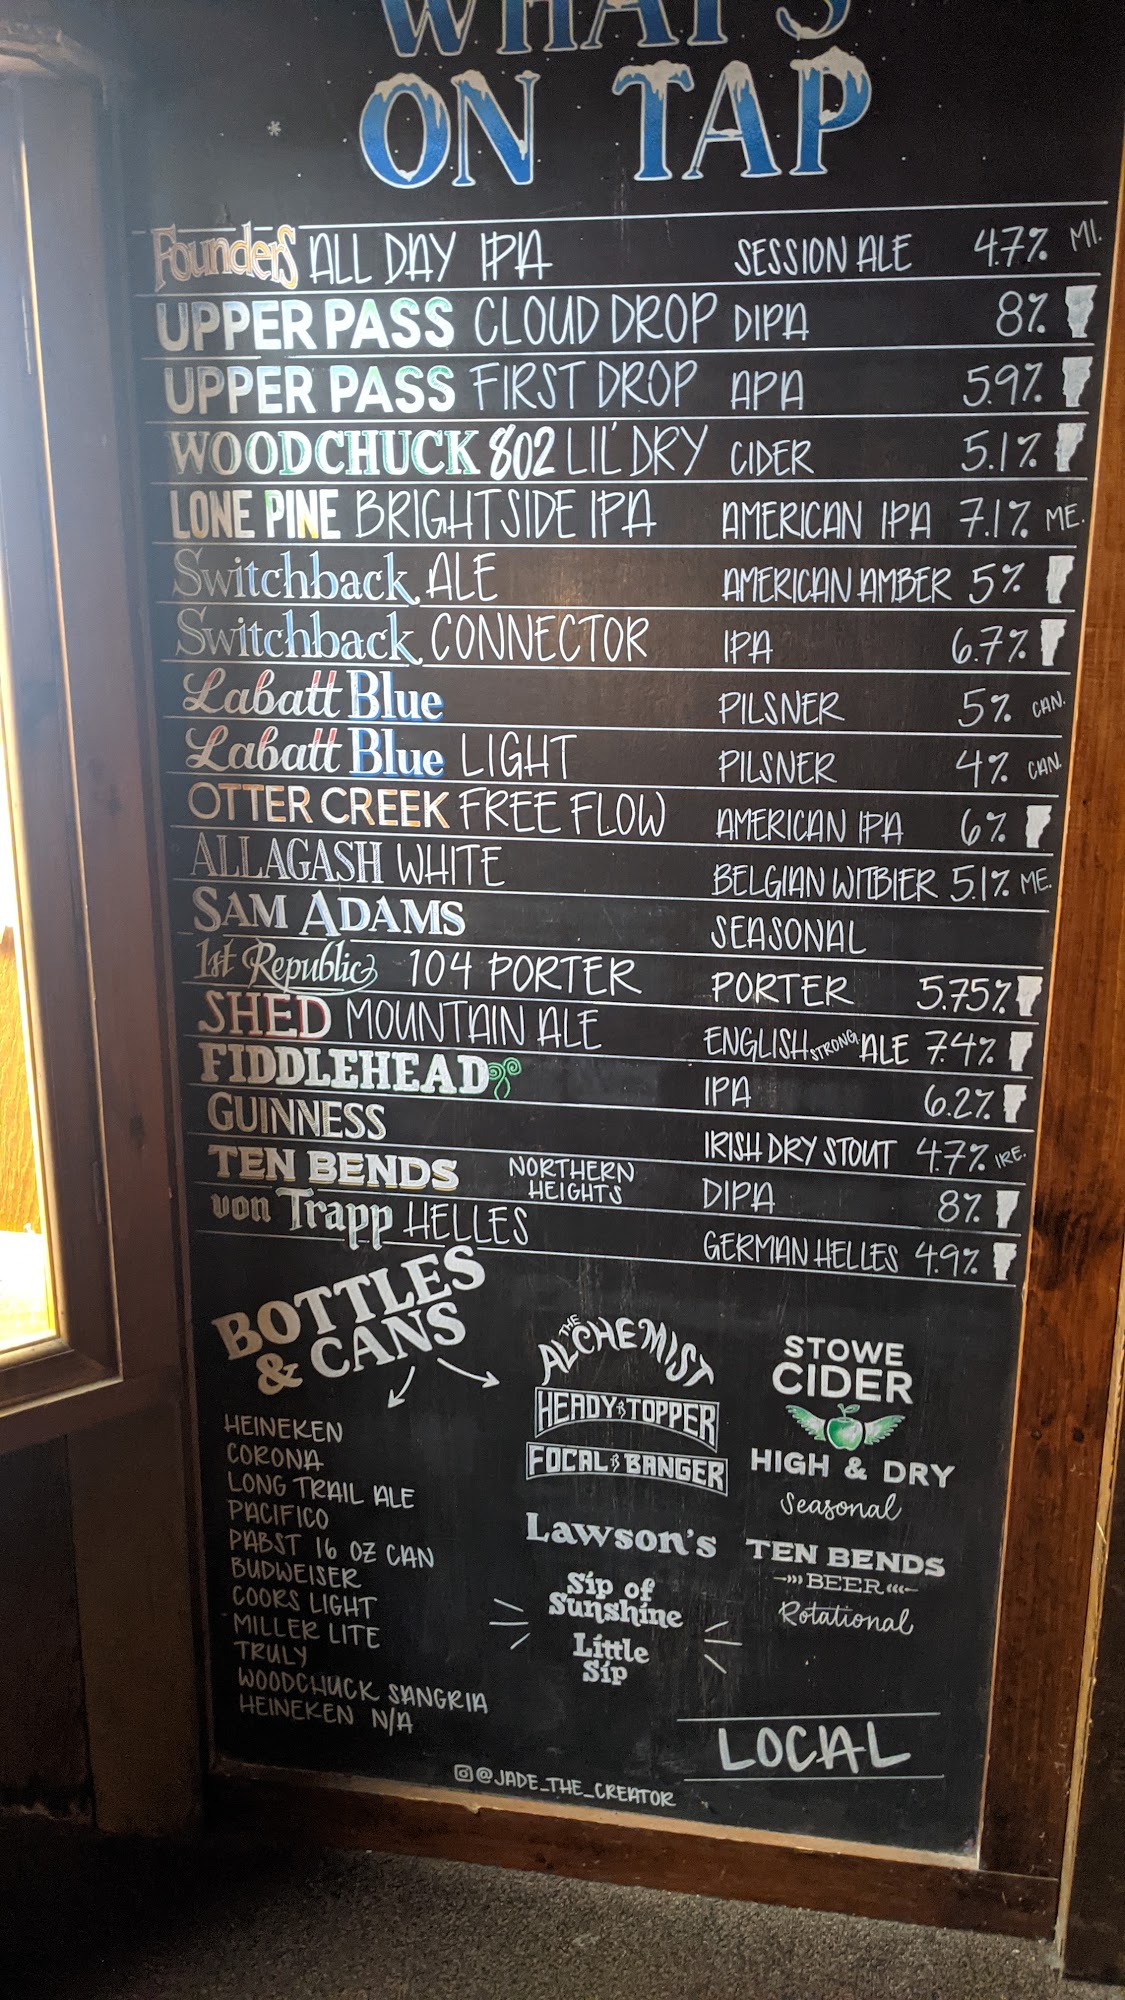 WHAT'S
ON TAP
Founders ALL DAY IPA SESSION ALE 4.7% MI.
UPPER PASS CLOUD DROP DIPA 8%
UPPER PASS FIRST DROP APA 5.9%
WOODCHUCK 802 LIL' DRY CIDER 5.1%
LONE PINE BRIGHTSIDE IPA AMERICAN IPA 7.1% ME.
Switchback ALE AMERICAN AMBER 5%
Switchback CONNECTOR IPA 6.7%
Labatt Blue PILSNER 5% CAN.
Labatt Blue LIGHT PILSNER 4% CAN.
OTTER CREEK FREE FLOW AMERICAN IPA 6%
ALLAGASH WHITE BELGIAN WITBIER 5.1% ME.
SAM ADAMS SEASONAL
1st Republic 104 PORTER PORTER 5.75%
SHED MOUNTAIN ALE ENGLISH STRONG ALE 7.4%
FIDDLEHEAD IPA 6.2%
GUINNESS IRISH DRY STOUT 4.7% IRE.
TEN BENDS NORTHERN HEIGHTS DIPA 8%
von Trapp HELLES GERMAN HELLES 4.9%
BOTTLES
& CANS
HEINEKEN
CORONA
LONG TRAIL ALE
PACIFICO
PABST 16 OZ CAN
BUDWEISER
COORS LIGHT
MILLER LITE
TRULY
WOODCHUCK SANGRIA
HEINEKEN N/A
THE
ALCHEMIST
HEADY TOPPER
FOCAL BANGER
LAWSON'S
Sip of
Sunshine
Little
Sip
STOWE
CIDER
HIGH & DRY
Seasonal
TEN BENDS
BEER
Rotational
LOCAL
@JADE_THE_CREATOR